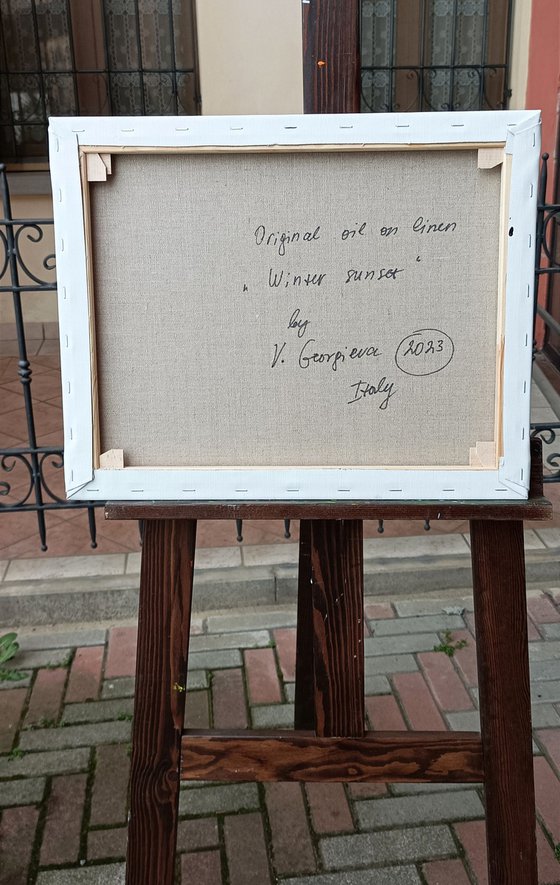 Original oil on linen
„ Winter sunset “
by
V. Georgieva 2023
Italy